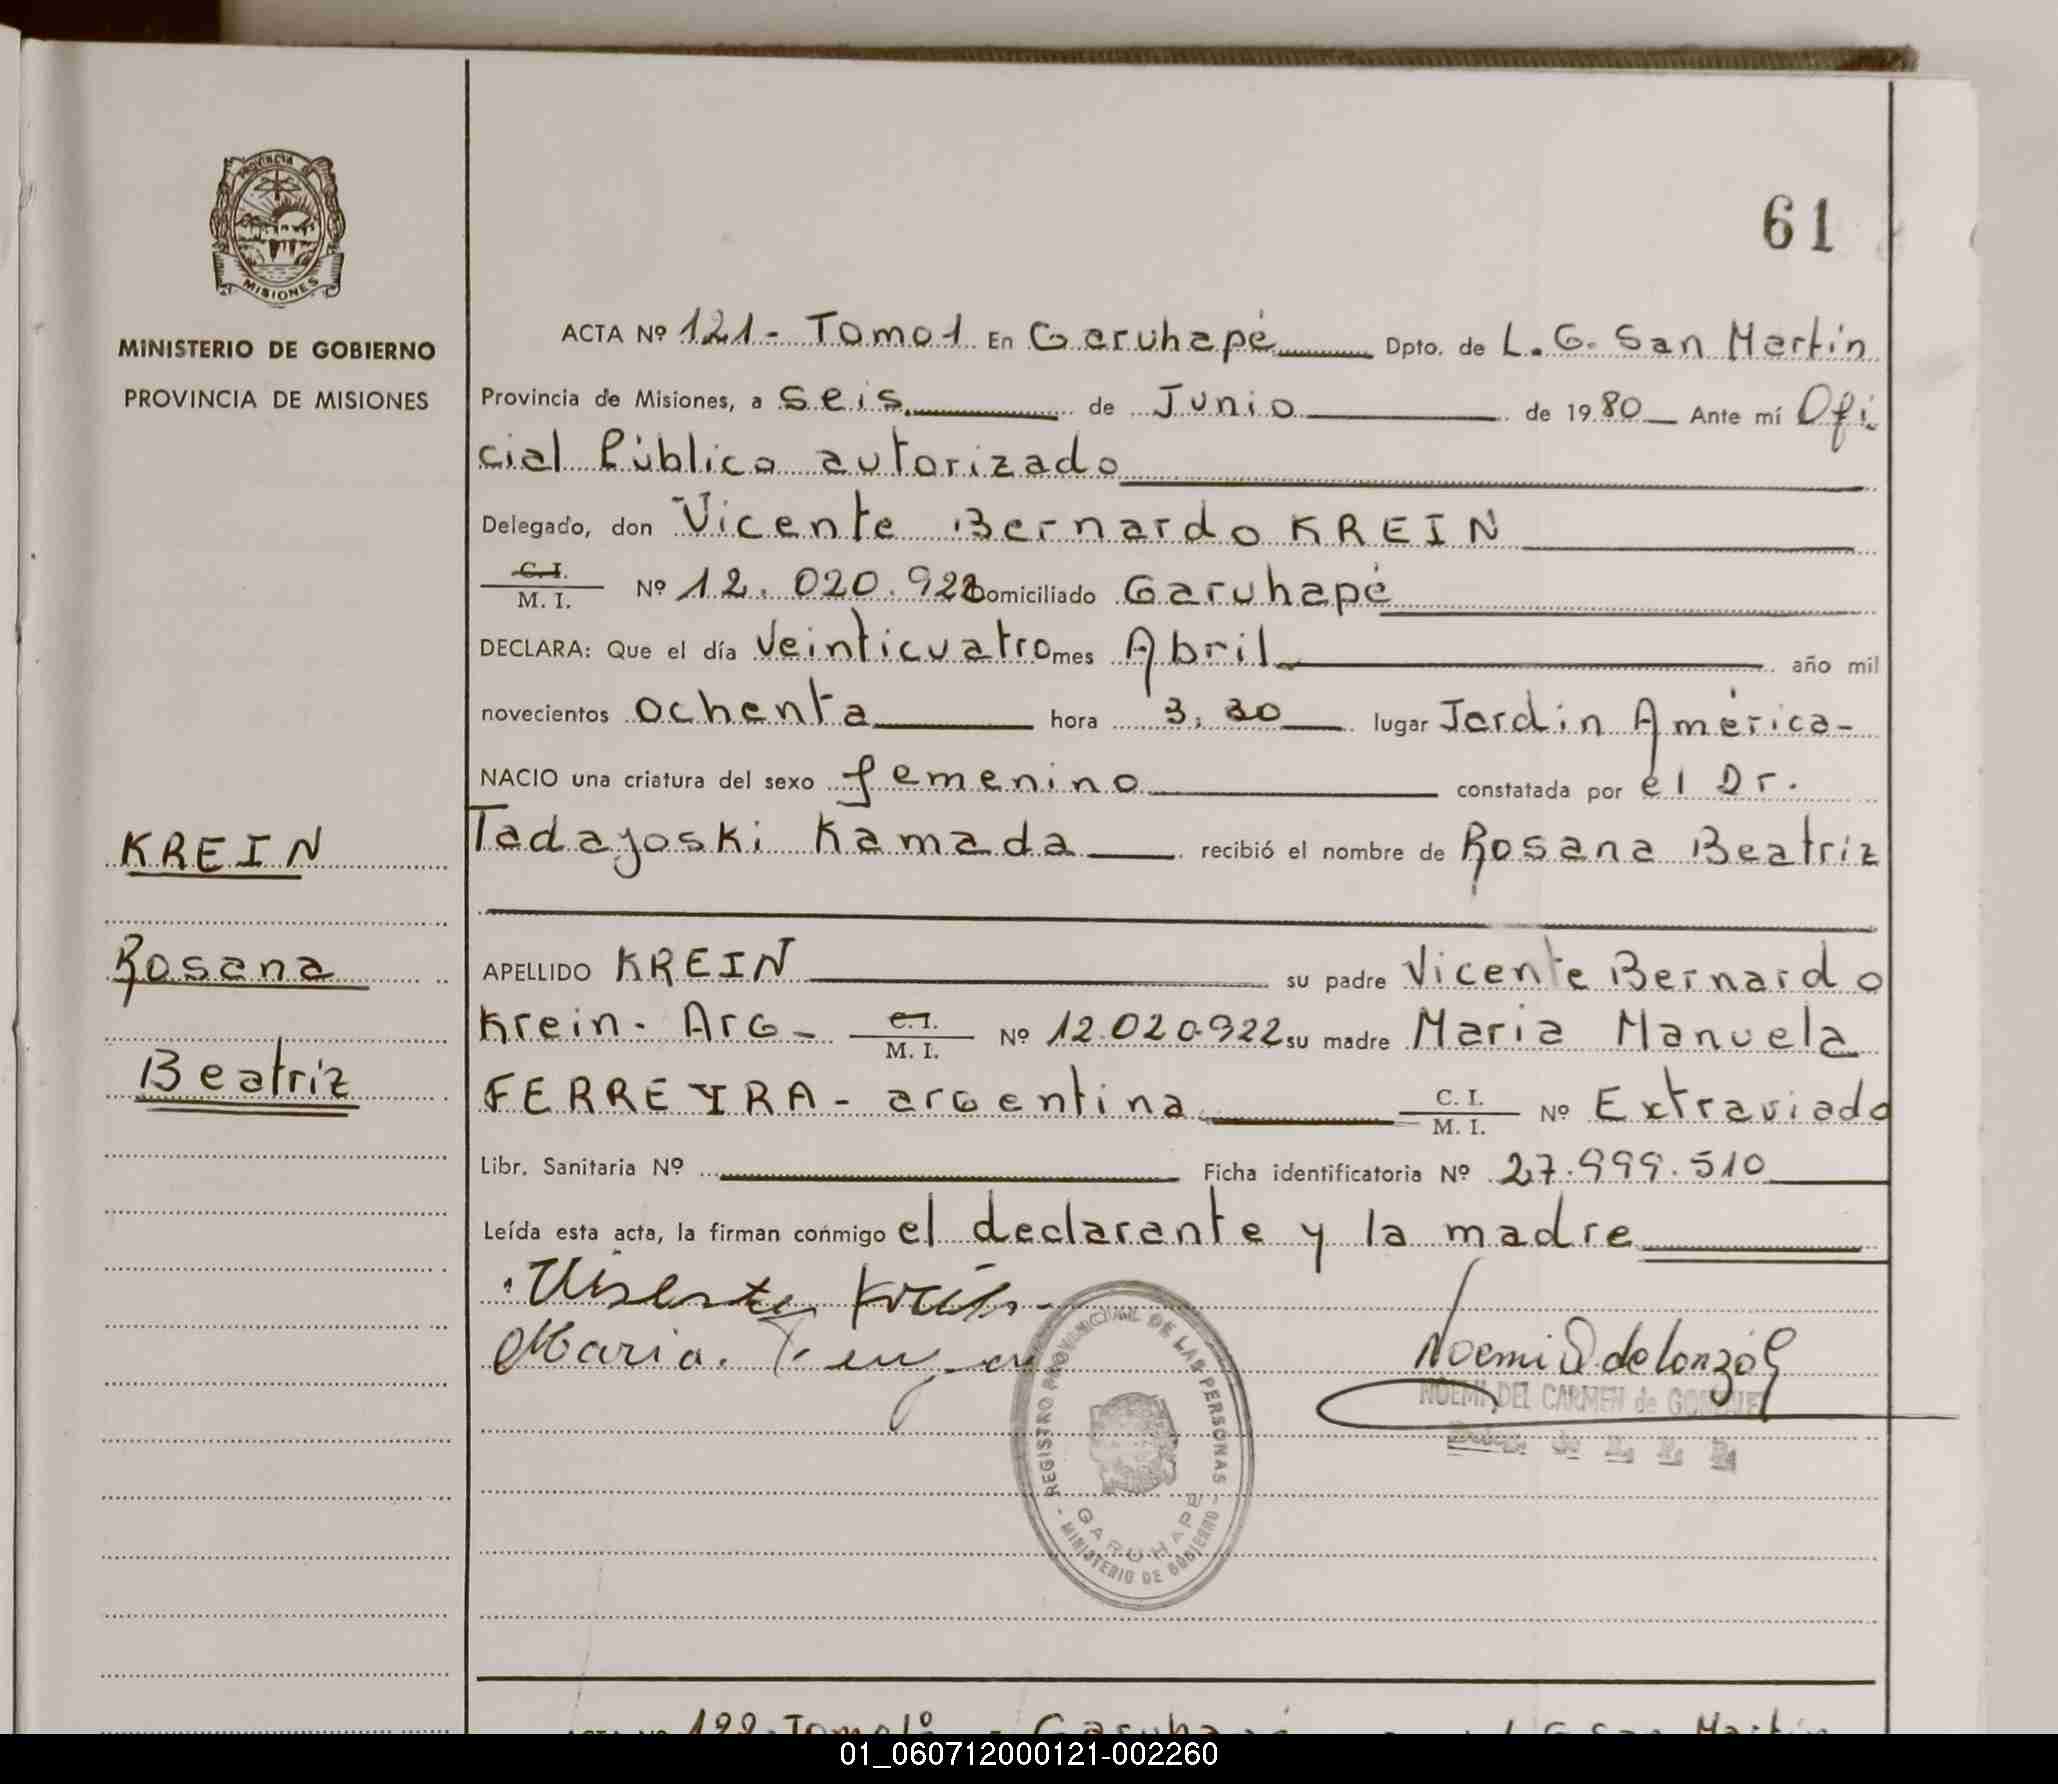 61
PROVINCIA
MISIONES
MINISTERIO DE GOBIERNO
PROVINCIA DE MISIONES
KREIN
Rosana
Beatriz
ACTA Nº 121- Tomo 1 En Garuhapé Dpto. de L. G. San Martin
Provincia de Misiones, a Seis de Junio de 1980 Ante mí Ofi
cial Público autorizado
Delegado, don Vicente Bernardo KREIN
C. I.
M. I. Nº 12.020.922 Domiciliado Garuhapé
DECLARA: Que el día Veinticuatro mes Abril año mil
novecientos ochenta hora 3,30 lugar Jardin América-
NACIO una criatura del sexo femenino constatada por el Dr.
Tadayoski Kamada recibió el nombre de Rosana Beatriz
APELLIDO KREIN su padre Vicente Bernardo
Krein- Arg- C. I. M. I. Nº 12.020.922 su madre Maria Manuela
FERREYRA- argentina C. I. M. I. Nº Extraviado
Libr. Sanitaria Nº Ficha identificatoria Nº 27.999.510
Leída esta acta, la firman conmigo el declarante y la madre
Maria.
NOEMI DEL CARMEN de GONZALEZ
REGISTRO PROVINCIAL DE LAS PERSONAS
GARUHAPE
- MINISTERIO DE GOBIERNO -
ACTA Nº 122-Tomo 1º Garuhapé L G San Martin
01_060712000121-002260